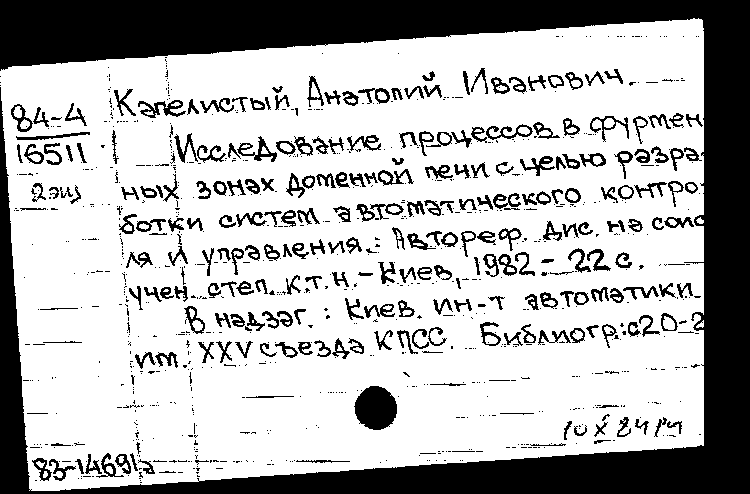 84-4
16511
2 экз
Капелистый, Анатолий Иванович.
Исследование процессов в фурмен-
ных зонах доменной печи с целью разра-
ботки систем автоматического контро-
ля и управления.: Автореф. дис. на соис
учен. степ. к.т.н. - Киев, 1982 - 22 с.
В надзаг.: Киев. ин-т автоматики
им. XXV съезда КПСС. Библиогр: с20-2
10 X 84
83-14691а